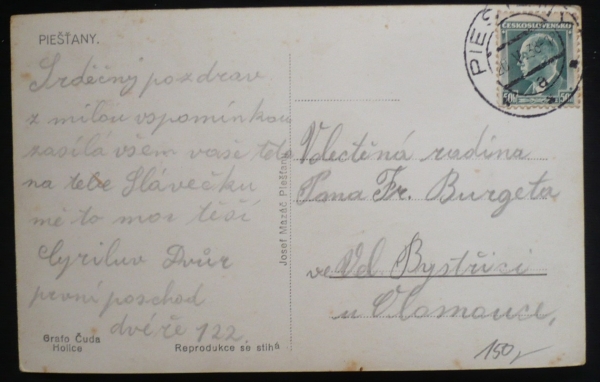 PIEŠŤANY.
Srdečný pozdrav
z milou vspomínkou
zasílá všem vaše teta
na tebe Slávečku
mě to moc těší
Cyriluv Dvůr
první poschod
dvéře 122.
Grafo Čuda
Holice
Reprodukce se stíhá
Josef Mazáč Piešťany
ČESKOSLOVENSKO
50h 50h
PIEŠŤANY
a
Vdectěná rodina
Pana Fr. Burgeta
ve Vel. Bystřici
u Olomouce,
150,-